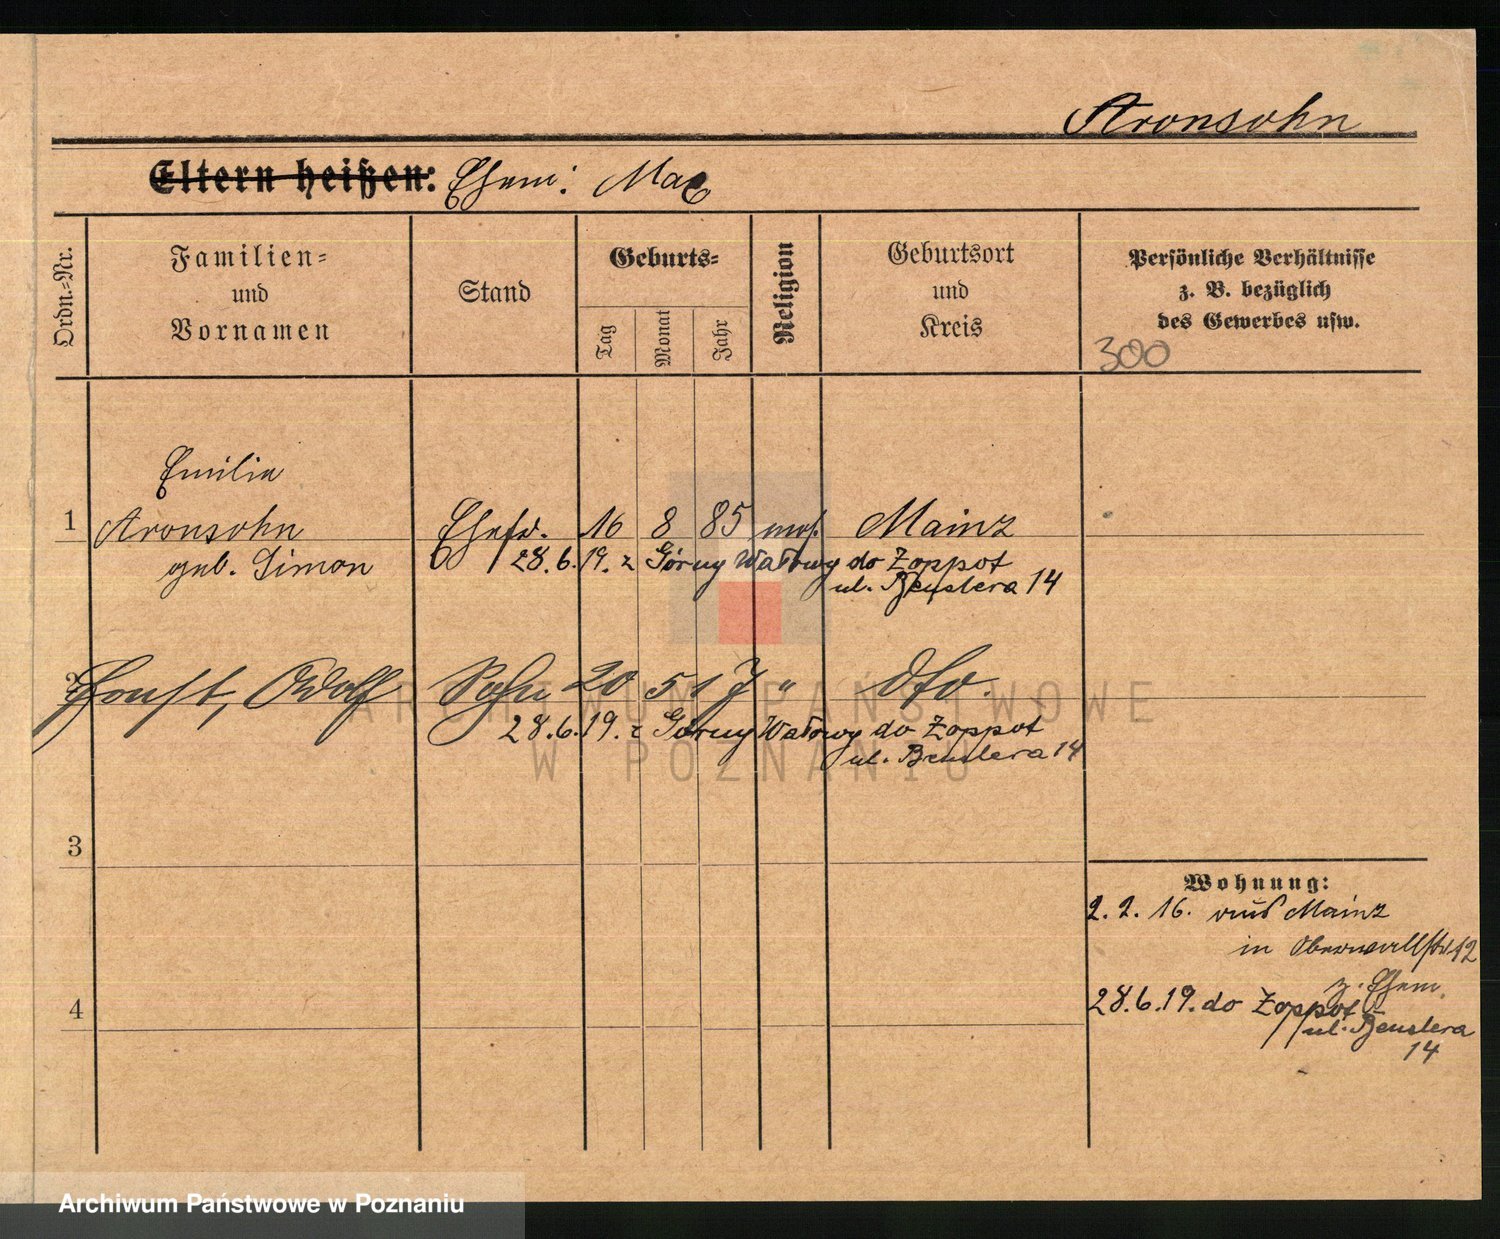 Aronsohn
Eltern heißen: Ehem: Max
Ordn.-Nr.
Familien-
und
Vornamen
Stand
Geburts-
Tag
Monat
Jahr
Religion
Geburtsort
und
Kreis
Persönliche Verhältnisse
z. B. bezüglich
des Gewerbes usw.
300
Emilie
1 Aronsohn Ehefr. 16 8 85 mos. Mainz
geb. Simon
28.6.19. z Górny Wałowy do Zoppot
ul. Benslera 14
2 Ernst, Adolf Sohn 20 5 17 " dto.
28.6.19. z Górny Wałowy do Zoppot
ul. Benslera 14
ARCHIWUM PAŃSTWOWE
W POZNANIU
3
4
Wohnung:
2. 2. 16. aus Mainz
in Oberwallstr 12
z. Ehem.
28.6.19. do Zoppot
ul. Benslera
14
Archiwum Państwowe w Poznaniu